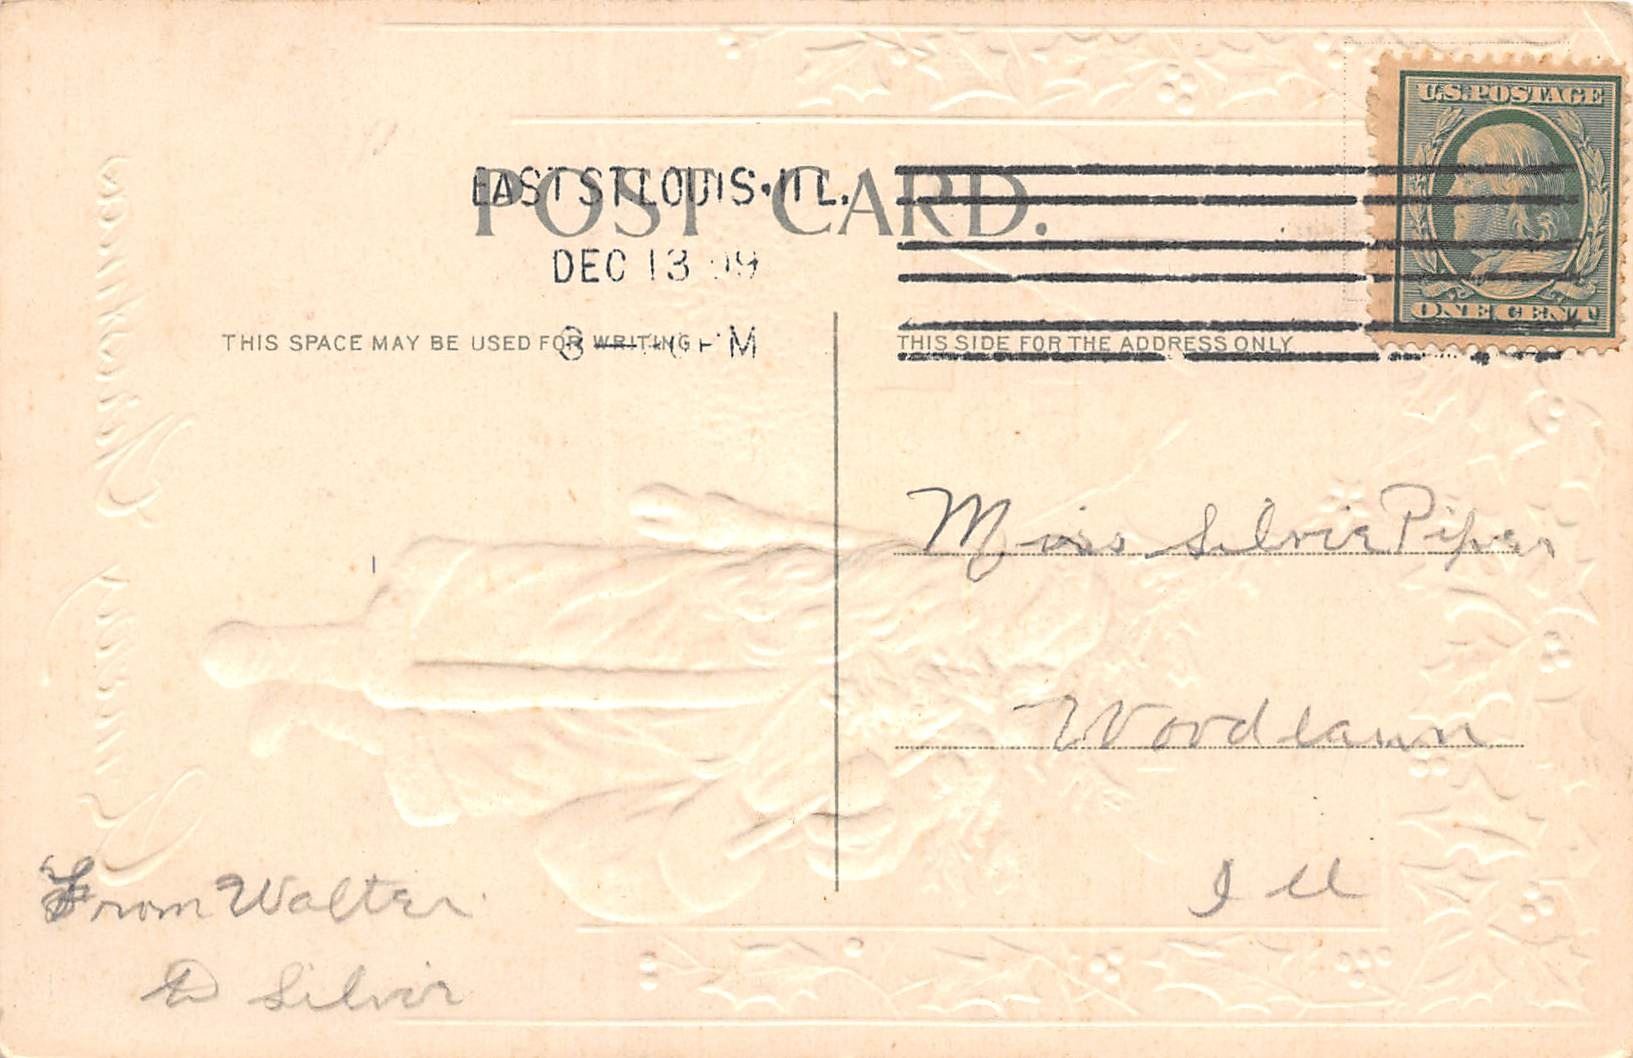 U.S. POSTAGE
POST CARD.
EAST ST LOUIS. ILL.
DEC 13 09
8 PM
THIS SPACE MAY BE USED FOR WRITING.
THIS SIDE FOR THE ADDRESS ONLY
ONE CENT
Miss Silvie Piper
Woodlawn
Ill
From Walter
to Silvie